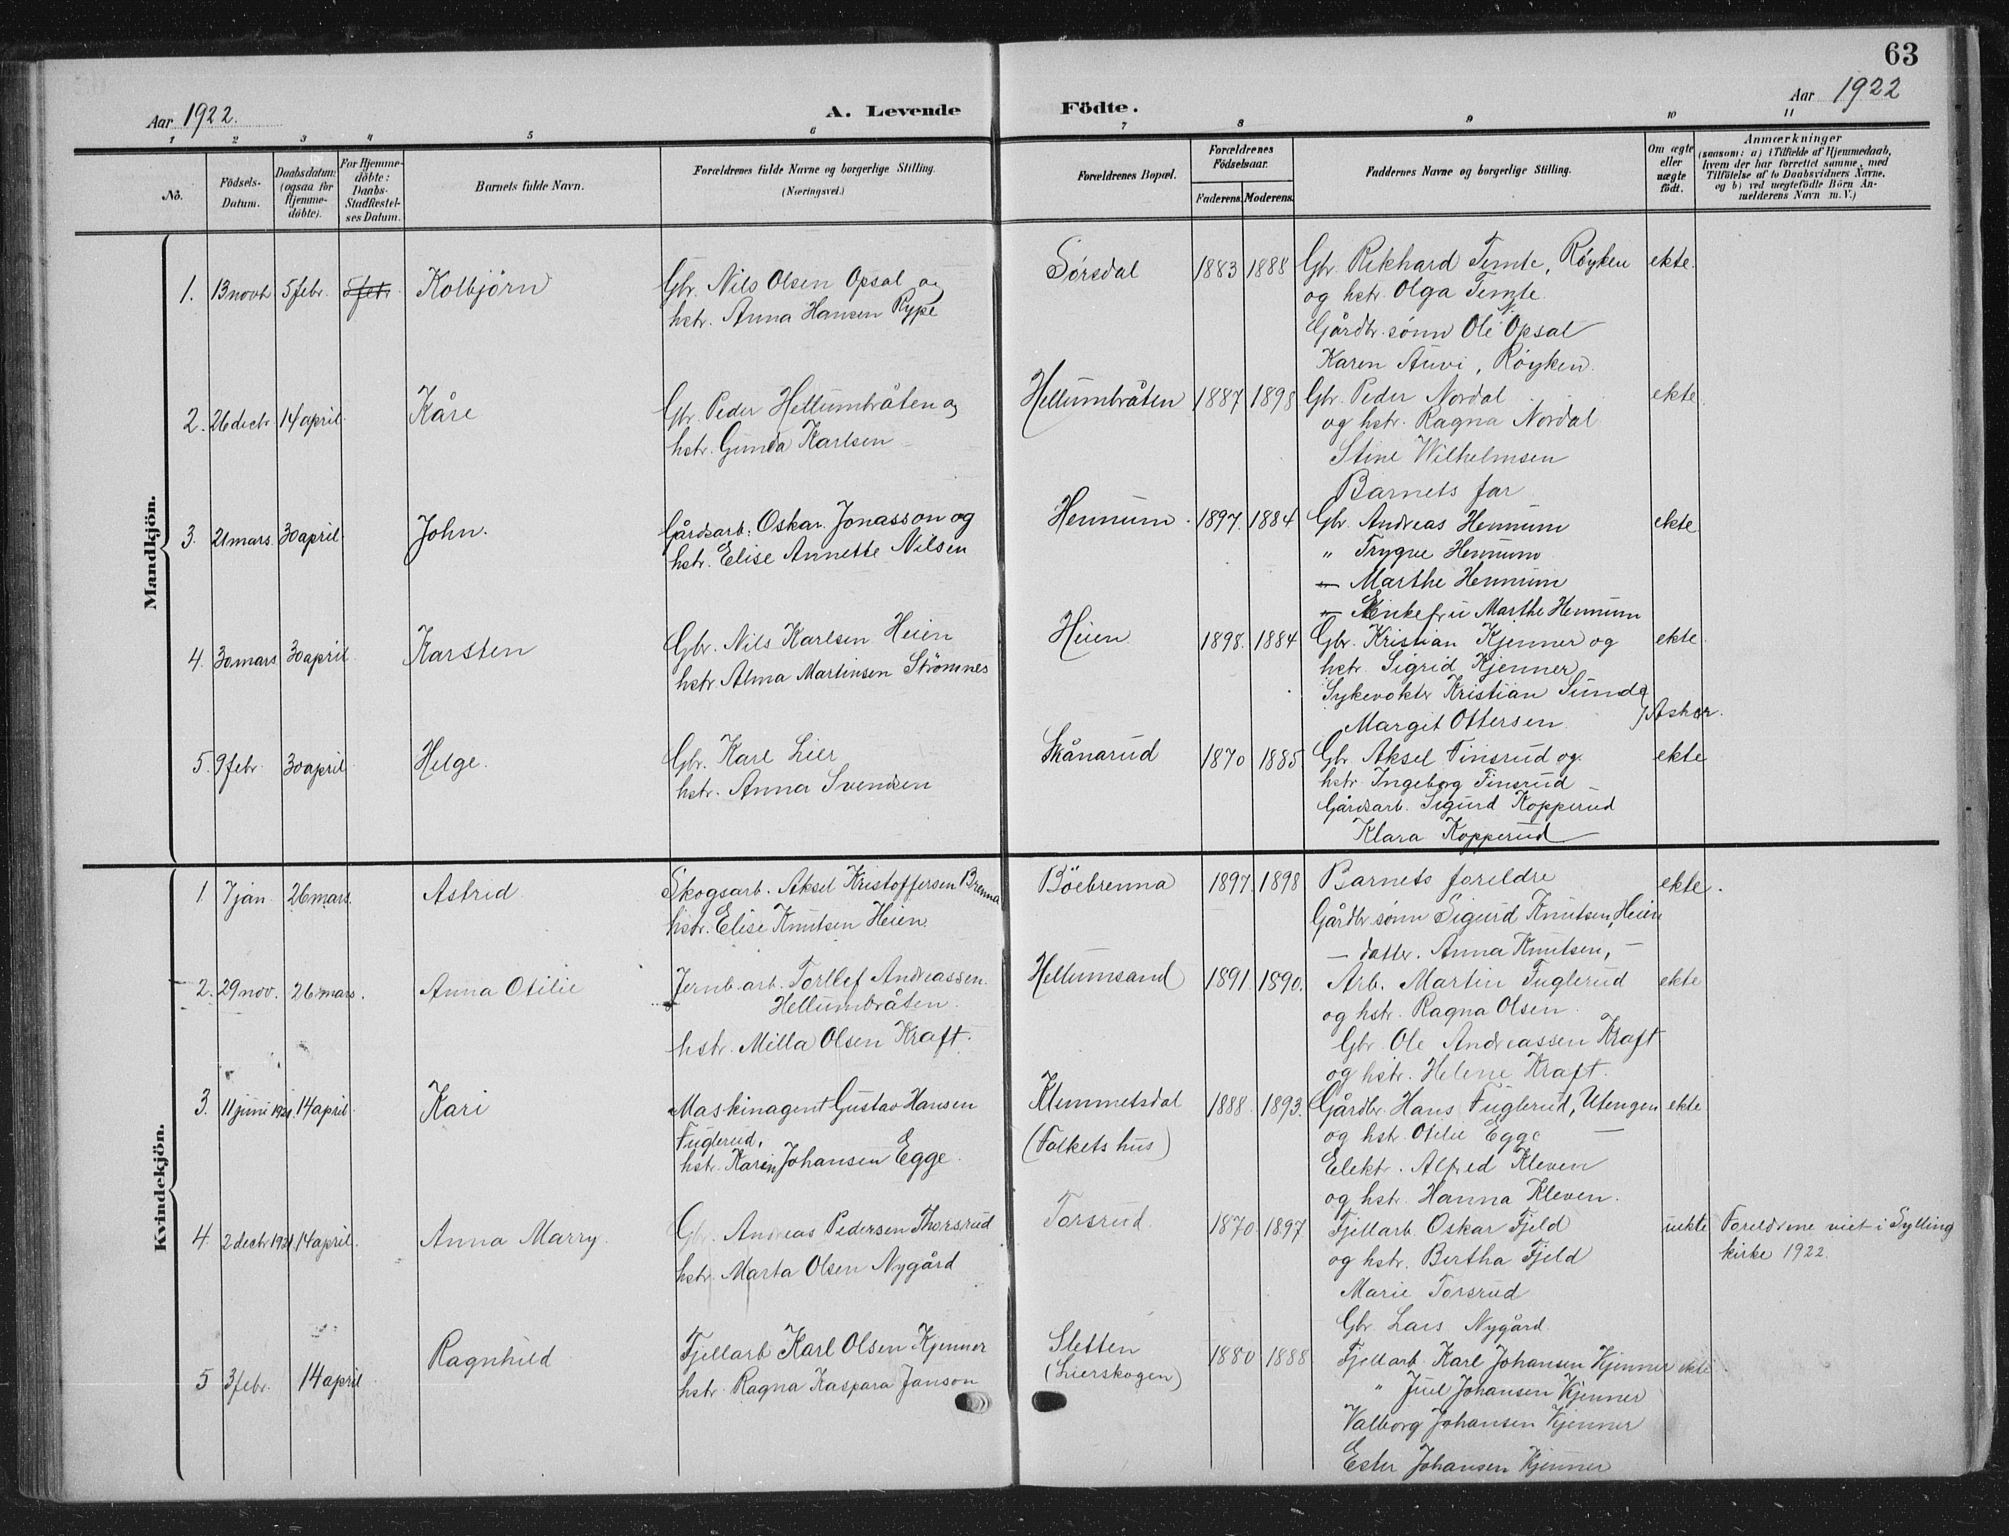 63
Aar 1922.
A. Levende Födte.
Aar 1922
1 2 3 4 5 6 7 8 9 10 11
No.
Födsels-
Datum.
Daabsdatum:
(ogsaa for
Hjemme-
döbte).
For Hjemme-
döbte:
Daabs-
Stadfæstel-
ses Datum.
Barnets fulde Navn.
Forældrenes fulde Navne og borgerlige Stilling.
(Næringsvei.)
Forældrenes Bopæl.
Forældrenes
Födselsaar.
Faderens. Moderens.
Faddernes Navne og borgerlige Stilling.
Om ægte
eller
uægte
födt.
Anmærkninger
(saasom: a) i Tilfælde af Hjemmedaab,
hvem der har forrettet samme, med
Tilföielse af to Daabsvidners Navne,
og b) ved uægtefödte Börn An-
melderens Navn m. V.)
Mandkjön.
1. 13 novb. 5 febr. 5 febr. Kolbjörn
Gbr. Nils Olsen Opsal og
hstr. Anna Hansen Rype
Sørsdal 1883 1888
Gbr. Rikhard Temte, Røyken
og hstr. Olga Temte.
Gårdbr. sønn Ole Opsal
Karen Auvi, Røyken.
ekte.
2. 26 decbr 14 april. Kåre
Gbr. Peder Hellumbråten og
hstr. Gunda Karlsen
Hellumbråten 1887 1898
Gbr. Peder Nordal
og hstr. Ragna Nordal
Stine Wilhelmsen
Barnets far
ekte.
3. 21 mars. 30 april. John.
Gårdsarb: Oskar Jonasson og
hstr. Elise Annette Nilsen
Hennum. 1897. 1884
Gbr. Andreas Hennum
" Trygve Hennum
— Marthe Hennum
— Enkefru Marthe Hennum
ekte
4. 30 mars 30 april. Karsten
Gbr. Nils Karlsen Heien
hstr. Alma Martinsen Strömnes
Heien 1898. 1884
Gbr. Kristian Kjenner og
hstr. Sigrid Kjenner
Sykevokter Kristian Sunde
Margit Ottersen } Asker.
ekte.
5. 9 febr. 30 april. Helge.
Gbr. Karl Lier
hstr. Anna Svendsen
Skånarud 1870 1885
Gbr. Aksel Tinsrud og
hstr. Ingeborg Tinsrud
Gårdsarb. Sigurd Kopperud
Klara Kopperud
ekte
Kvindekjön.
1 7 jan 26 mars. Astrid
Skogsarb. Aksel Kristoffersen Brenna
hstr. Elise Knutsen Heien.
Böebrenna 1897. 1898
Barnets foreldre
Gårdbr. sønn Sigurd Knutsen, Heien
— datter. Anna Knutsen, —
ekte.
2. 29 nov. 26 mars. Anna Otilie
Jernb.arb. Torllef Andreassen
Hellumbråten.
hstr. Milla Olsen Kraft.
Hellumsand 1891 1890.
Arb. Martin Fuglerud
og hstr. Ragna Olsen.
Gbr. Ole Andreassen Kraft
og hstr. Helene Kraft.
ekte
3. 11 juni 1921. 14 april. Kari
Maskinagent Gustav Hansen
Fuglerud,
hstr. Karen Johansen Egge.
Klemmetsdal
(Folkets hus)
1888. 1893.
Gårdbr. Hans Fuglerud, Utengen
og hstr. Otilie Egge —
Elektr. Alfred Kleven
og hstr. Hanna Kleven.
ekte
4. 2 decbr 1921 14 april. Anna Marry.
Gbr. Andreas Pedersen Thorsrud
hstr. Marta Olsen Nygård
Torsrud. 1870 1897
Fjellarb. Oskar Fjeld
og hstr. Bertha Fjeld
Marie Torsrud
Gbr. Lars Nygård.
uekte
Foreldrene viet i Sylling
kirke 1922.
5 3 febr. 14 april Ragnhild
Fjellarb Karl Olsen Kjenner
hstr. Ragna Kaspara Janson
Sletten
(Lierskogen)
1880 1888
Fjellarb. Karl Johansen Kjenner
" Juel Johansen Kjenner
Valborg Johansen Kjenner
Ester Johansen Kjenner
ekte